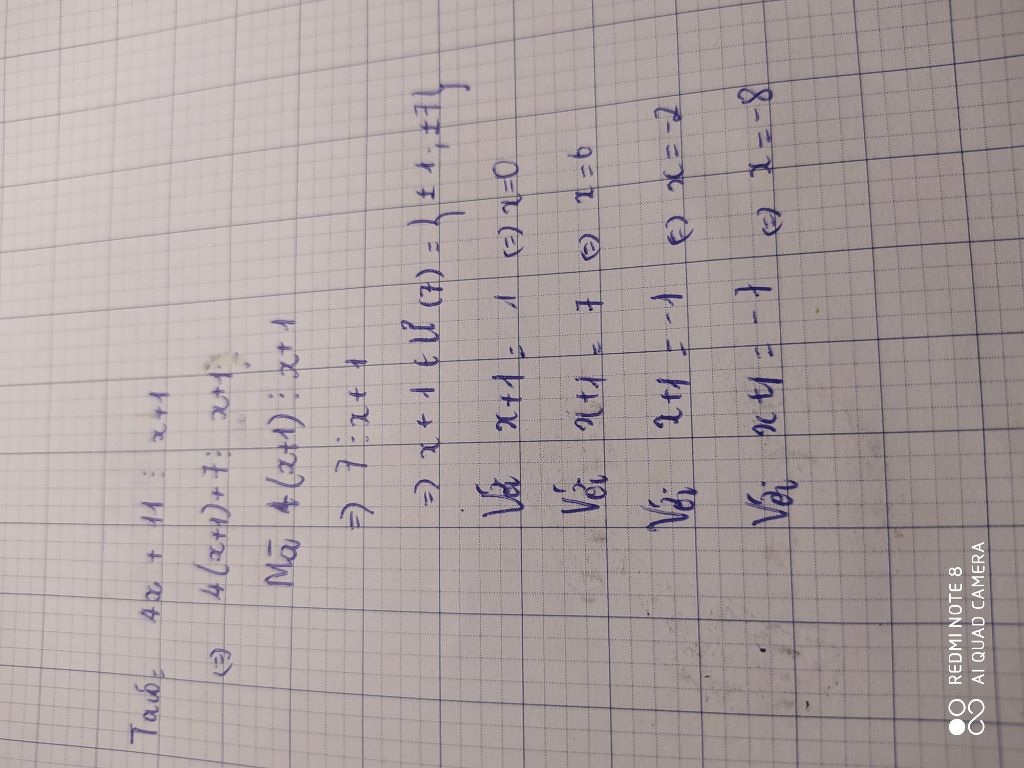 Ta có: 4x + 11 ⋮ x+1
(=) 4(x+1)+7 ⋮ x+1
Mà 4(x+1) ⋮ x+1
=) 7 ⋮ x+1
=) x+1 ∈ Ư(7) = { ±1; ±7}
Với x+1 = 1 (=) x=0
Với x+1 = 7 (=) x=6
Với x+1 = -1 (=) x=-2
Với x+1 = -7 (=) x=-8
REDMI NOTE 8
AI QUAD CAMERA